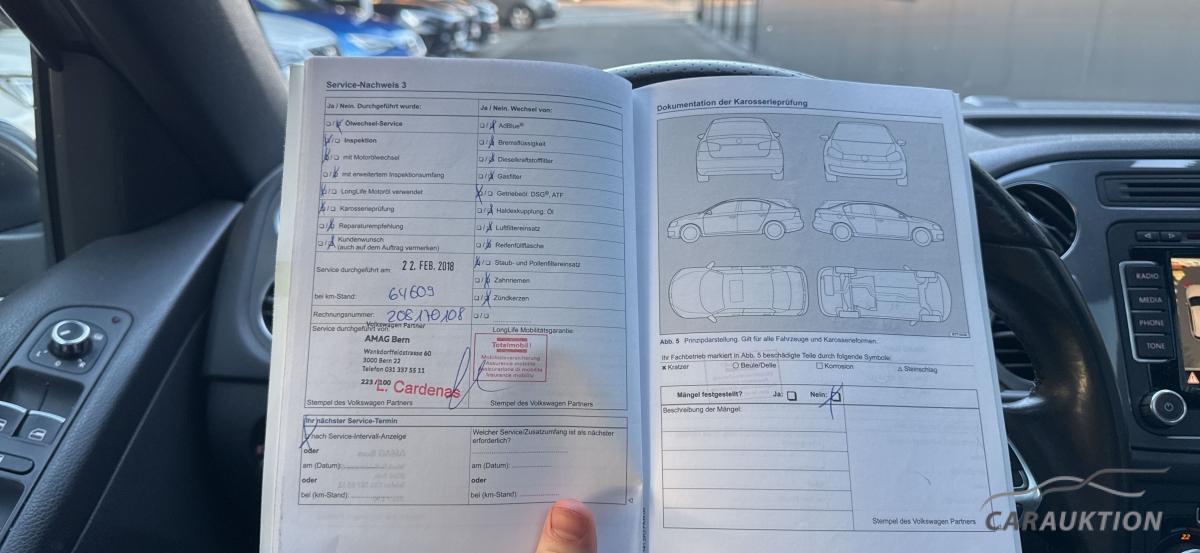 Service-Nachweis 3
Ja / Nein. Durchgeführt wurde:
Ölwechsel-Service
Inspektion
mit Motorölwechsel
mit erweitertem Inspektionsumfang
LongLife Motoröl verwendet
Karosserieprüfung
Reparaturempfehlung
Kundenwunsch
(auch auf dem Auftrag vermerken)
Service durchgeführt am: 22. FEB. 2018
bei km-Stand: 64609
Rechnungsnummer: 208170108
Service durchgeführt von:
Volkswagen Partner
AMAG Bern
Wankdorffeldstrasse 60
3000 Bern 22
Telefon 031 337 55 11
223 / 100
L. Cardenas
Stempel des Volkswagen Partners
Ja / Nein. Wechsel von:
AdBlue®
Bremsflüssigkeit
Dieselkraftstofffilter
Gasfilter
Getriebeöl: DSG®, ATF
Haldexkupplung: Öl
Luftfiltereinsatz
Reifenfüllflasche
Staub- und Pollenfiltereinsatz
Zahnriemen
Zündkerzen
LongLife Mobilitätsgarantie:
Totalmobil!
Mobilitätsversicherung
Assurance mobilité
Assicurazione di mobilità
Insurance mobility
Stempel des Volkswagen Partners
Ihr nächster Service-Termin
nach Service-Intervall-Anzeige
oder
am (Datum):
oder
bei (km-Stand):
Welcher Service/Zusatzumfang ist als nächster
erforderlich?
am (Datum):
oder
bei (km-Stand)
Dokumentation der Karosserieprüfung
Abb. 5 Prinzipdarstellung. Gilt für alle Fahrzeuge und Karosserieformen.
Ihr Fachbetrieb markiert in Abb. 5 beschädigte Teile durch folgende Symbole:
Kratzer Beule/Delle Korrosion Steinschlag
Mängel festgestellt? Ja: Nein:
Beschreibung der Mängel:
Stempel des Volkswagen Partners
RADIO
MEDIA
PHONE
TONE
CARAUKTION
22